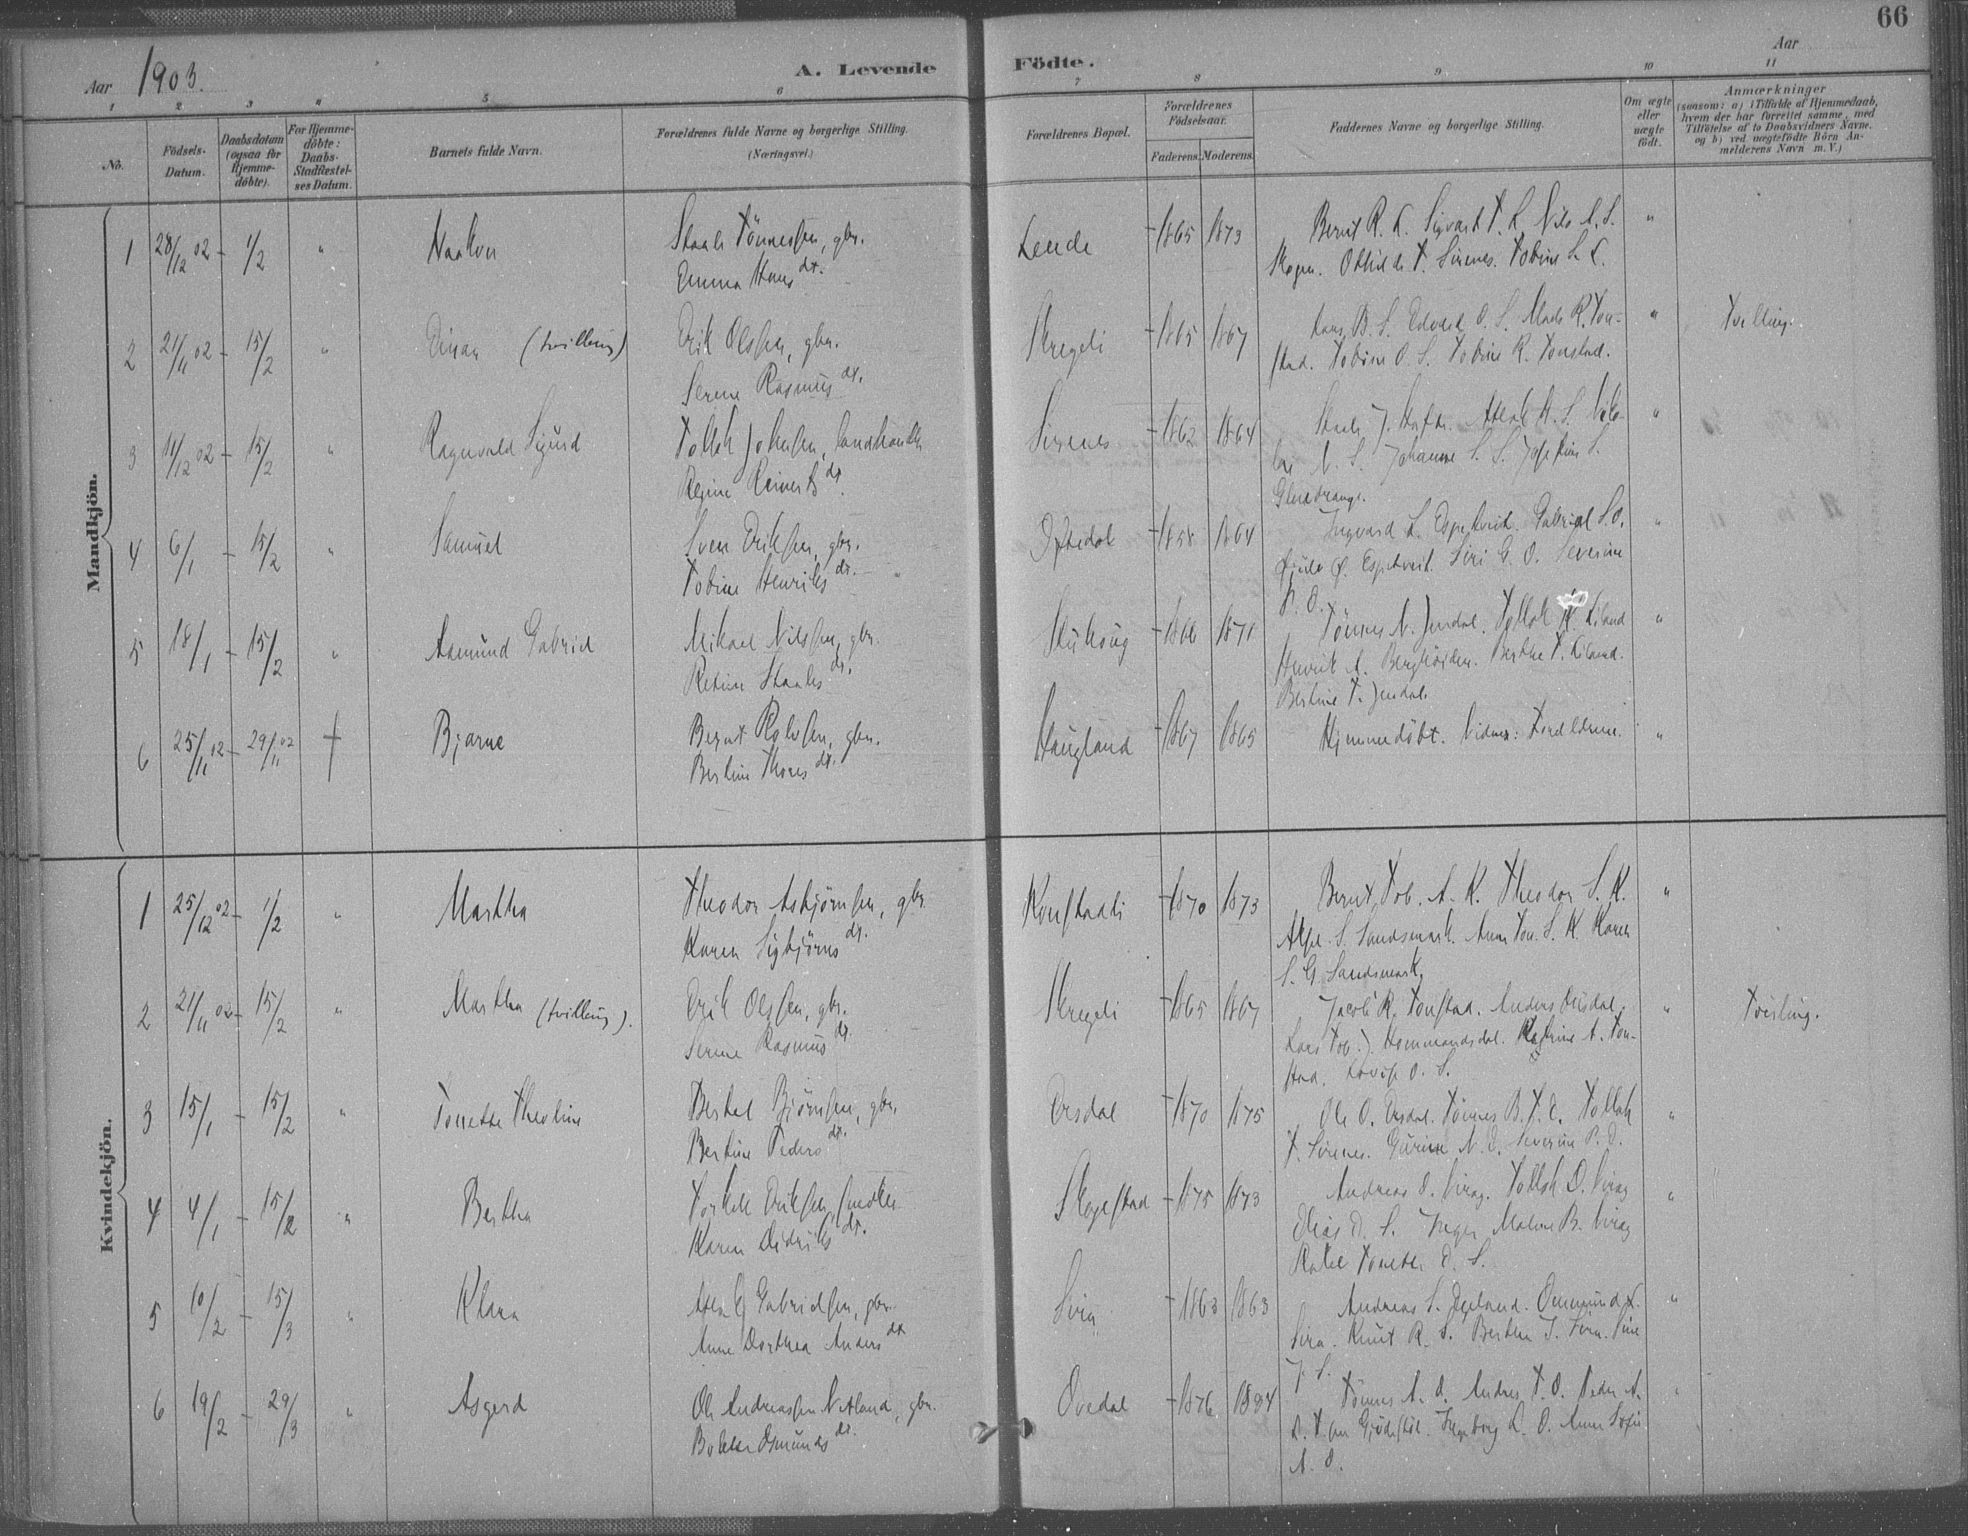 66
Aar 1903.
A. Levende Födte.
Aar
1 2 3 4 5 6 7 8 9 10 11
No.
Födsels-Datum.
Daabsdatum (ogsaa for Hjemme-döbte).
For Hjemme-döbte: Daabs-Stadfæstel-ses Datum.
Barnets fulde Navn.
Forældrenes fulde Navne og borgerlige Stilling. (Næringsvei.)
Forældrenes Bopæl.
Forældrenes Födselsaar.
Faderens. Moderens.
Faddernes Navne og borgerlige Stilling.
Om ægte eller uægte födt.
Anmærkninger (saasom: a) i Tilfælde af Hjemmedaab, hvem der har forrettet samme, med Tilföielse af to Daabsvidners Navne. og b) ved uægtefödte Börn An-melderens Navn m. V.)
Mandkjön.
1 28/12 02 - 1/2 " Haakon
Staale Tönnessen, gbr.
Emma Hans dtr.
Lende 1865 1873
Bernt R. L. Sigvart T. L. Nils A. S.
Skogen. Othilde T. Sirenes. Tobine S. L. "
2 21/11 02 - 15/2 " Einar (tvilling)
Erik Olsen, gbr.
Serine Rasmus dr.
Skregeli 1865 1867
Lars B. S. Edvard O. S. Mads R. Ton-
stad. Tobine O. S. Tobine R. Tonstad. "
Tvilling.
3 11/12 02 - 15/2 " Ragnvald Sigurd
Tollak Johnsen, landhandler
Regine Reinerts dr.
Sirenes 1862 1864
Johanne S. S. Josefine S.
Glendrange. "
4 6/1 - 15/2 " Samuel
Sven Eriksen, gbr.
Tobine Henriks dr.
Oftedal 1858 1864
Ingvard L. Espetveit. Gabriel S. O.
Espetveit. Siri G. O. Severine "
5 18/1 - 15/2 " Aamund Gabriel
Mikael Nilssen, gbr.
Retine Staales dr.
1866 1871
Tönnes N. Josdal. Tollak K. Liland
Henrik A. Berghöiden. Berthe T. Liland.
Bertine T. Josdal. "
6 25/11 02 - 29/11 02 † Bjarne
Bernt Rolvsen, gbr.
Bertine Thores dr.
Haugland 1867 1865
Hjemmedöbt. Vidner: Forældrene. "
Kvindekjön.
1 25/12 02 - 1/2 " Martha
Theodor Asbjörnsen, gbr.
Karen Sigbjörns dr.
Konstadli 1870 1873
Bernt Tob. A. K. Theodor S. K.
S. Sandsmark. Anne Ton. S. K. Karen
S. G. Sandsmark. "
2 21/11 02 - 15/2 " Martha (tvilling).
Erik Olsen, gbr.
Serine Rasmus dr.
Skregeli 1865 1867
Jacob R. Tonstad. Anders
Lars Tob. J. Hommandsdal. A. Ton-
stad. Lovise O. S. "
Tvilling.
3 15/1 - 15/2 " Tonette Theoline
Bertel Björnsen, gbr.
Bertine Peders dr.
Ersdal 1870 1875
Ole O. Ersdal. Tönnes B. T. E. Tollak
T. Sirenes. Gurine N. E. Severine P. E. "
4 4/1 - 15/2 " Bertha
Torkel Eriksen, smed
Karen Didriks dr.
Skogestad 1875 1873
Andreas O. Virag. Tollak D. Virag
Elias D. S. Inger Malene B. Virag
Rakel Tonette D. S. "
5 10/2 - 15/3 " Klara
Gabrielsen, gbr.
Anne Dorthea Anders dr.
Sira 1863 1863
Andreas S. Egeland. Ommund L.
Sira. Knut R. S. Berthe J. Sira. Sine
J. S. "
6 19/2 - 29/3 " Asgerd
Ole Andreassen Netland, gbr.
Bolette Osmunds dr.
Ovedal 1876 1884
Tönnes A. O. Andreas T. O. Peder A.
Ingeborg L. O. Anne Sofie
A. O. "